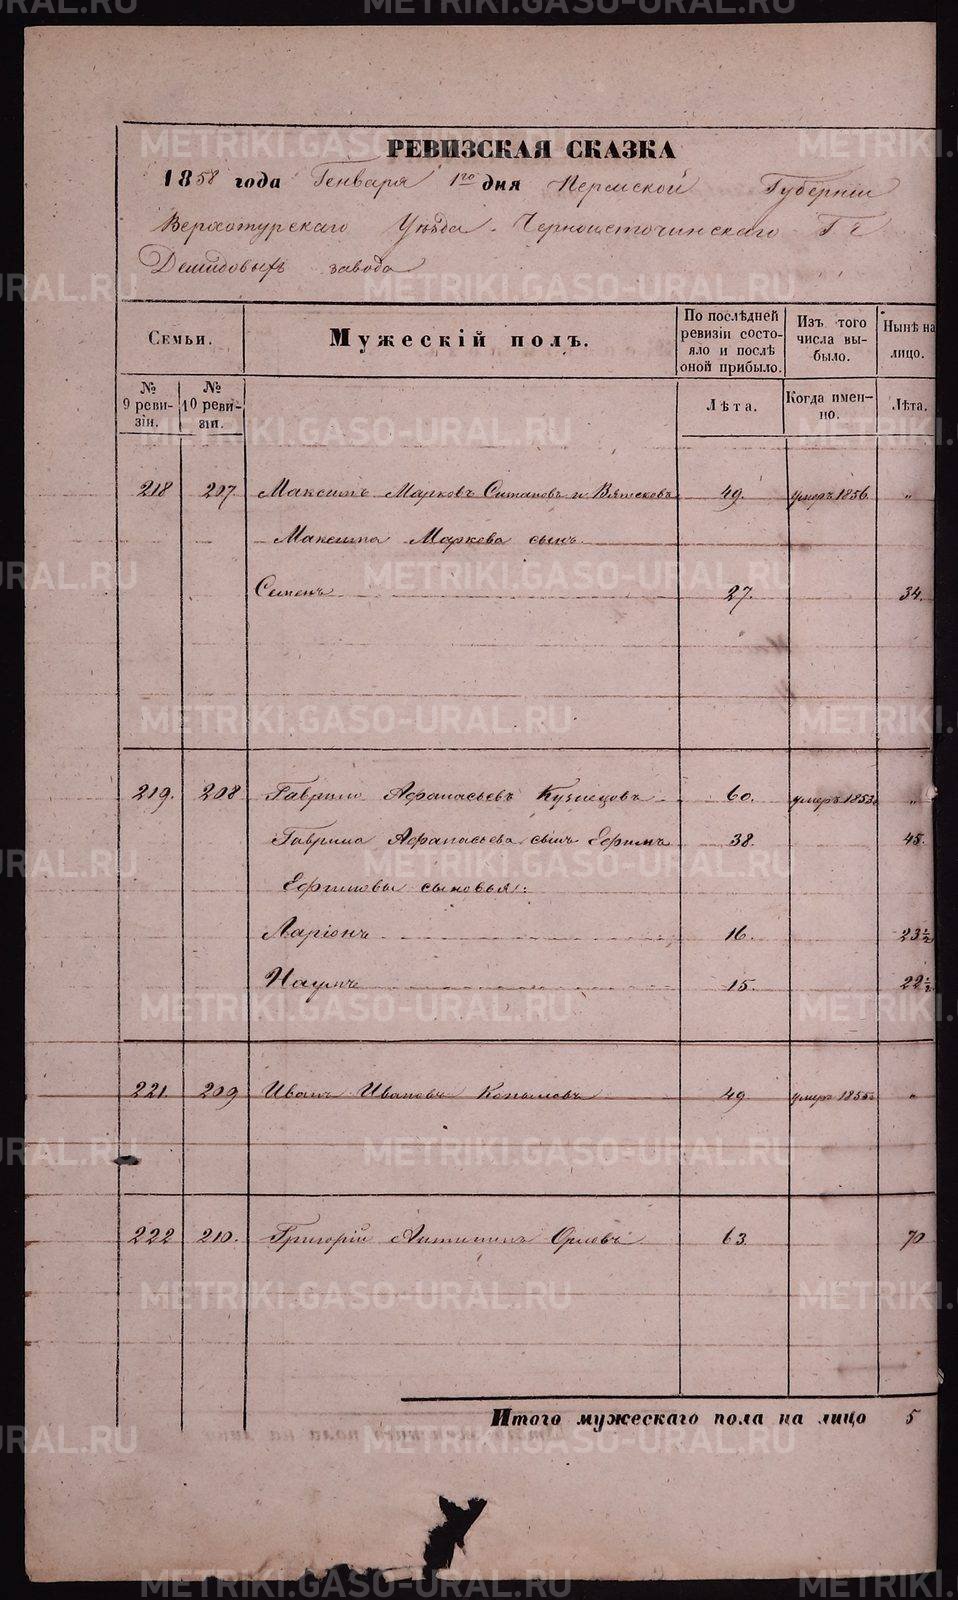 РЕВИЗСКАЯ СКАЗКА
1858 года Генваря 1го дня Пермской Губернiи
Верхотурскаго Уѣзда Черноисточинскаго Г.г.
Демидовыхъ завода
Семьи.
Мужескiй полъ.
По послѣдней ревизiи состояло и послѣ оной прибыло.
Изъ того числа выбыло.
Нынѣ на лицо.
№ 9 ревизiи.
№ 10 ревизiи.
Лѣта.
Когда именно.
Лѣта.
218 207 Максимъ Марковъ Ситановъ и Вятсковъ 49. умеръ 1856 "
Максима Маркова сынъ
Семенъ 27. 34.
219. 208 Гаврило Афанасьевъ Кузнецовъ 60. умеръ 1853 "
Гаврила Афанасьева сынъ Ефимъ 38. 45.
Ефимовы сыновья:
Ларiонъ 16. 23½
Наумъ 15. 22½
221. 209 Иванъ Ивановъ Копыловъ 49 умеръ 1855 "
222 210. Григорiй Антипинъ Орловъ 63 70
Итого мужескаго пола на лицо 5
METRIKI.GASO-URAL.RU